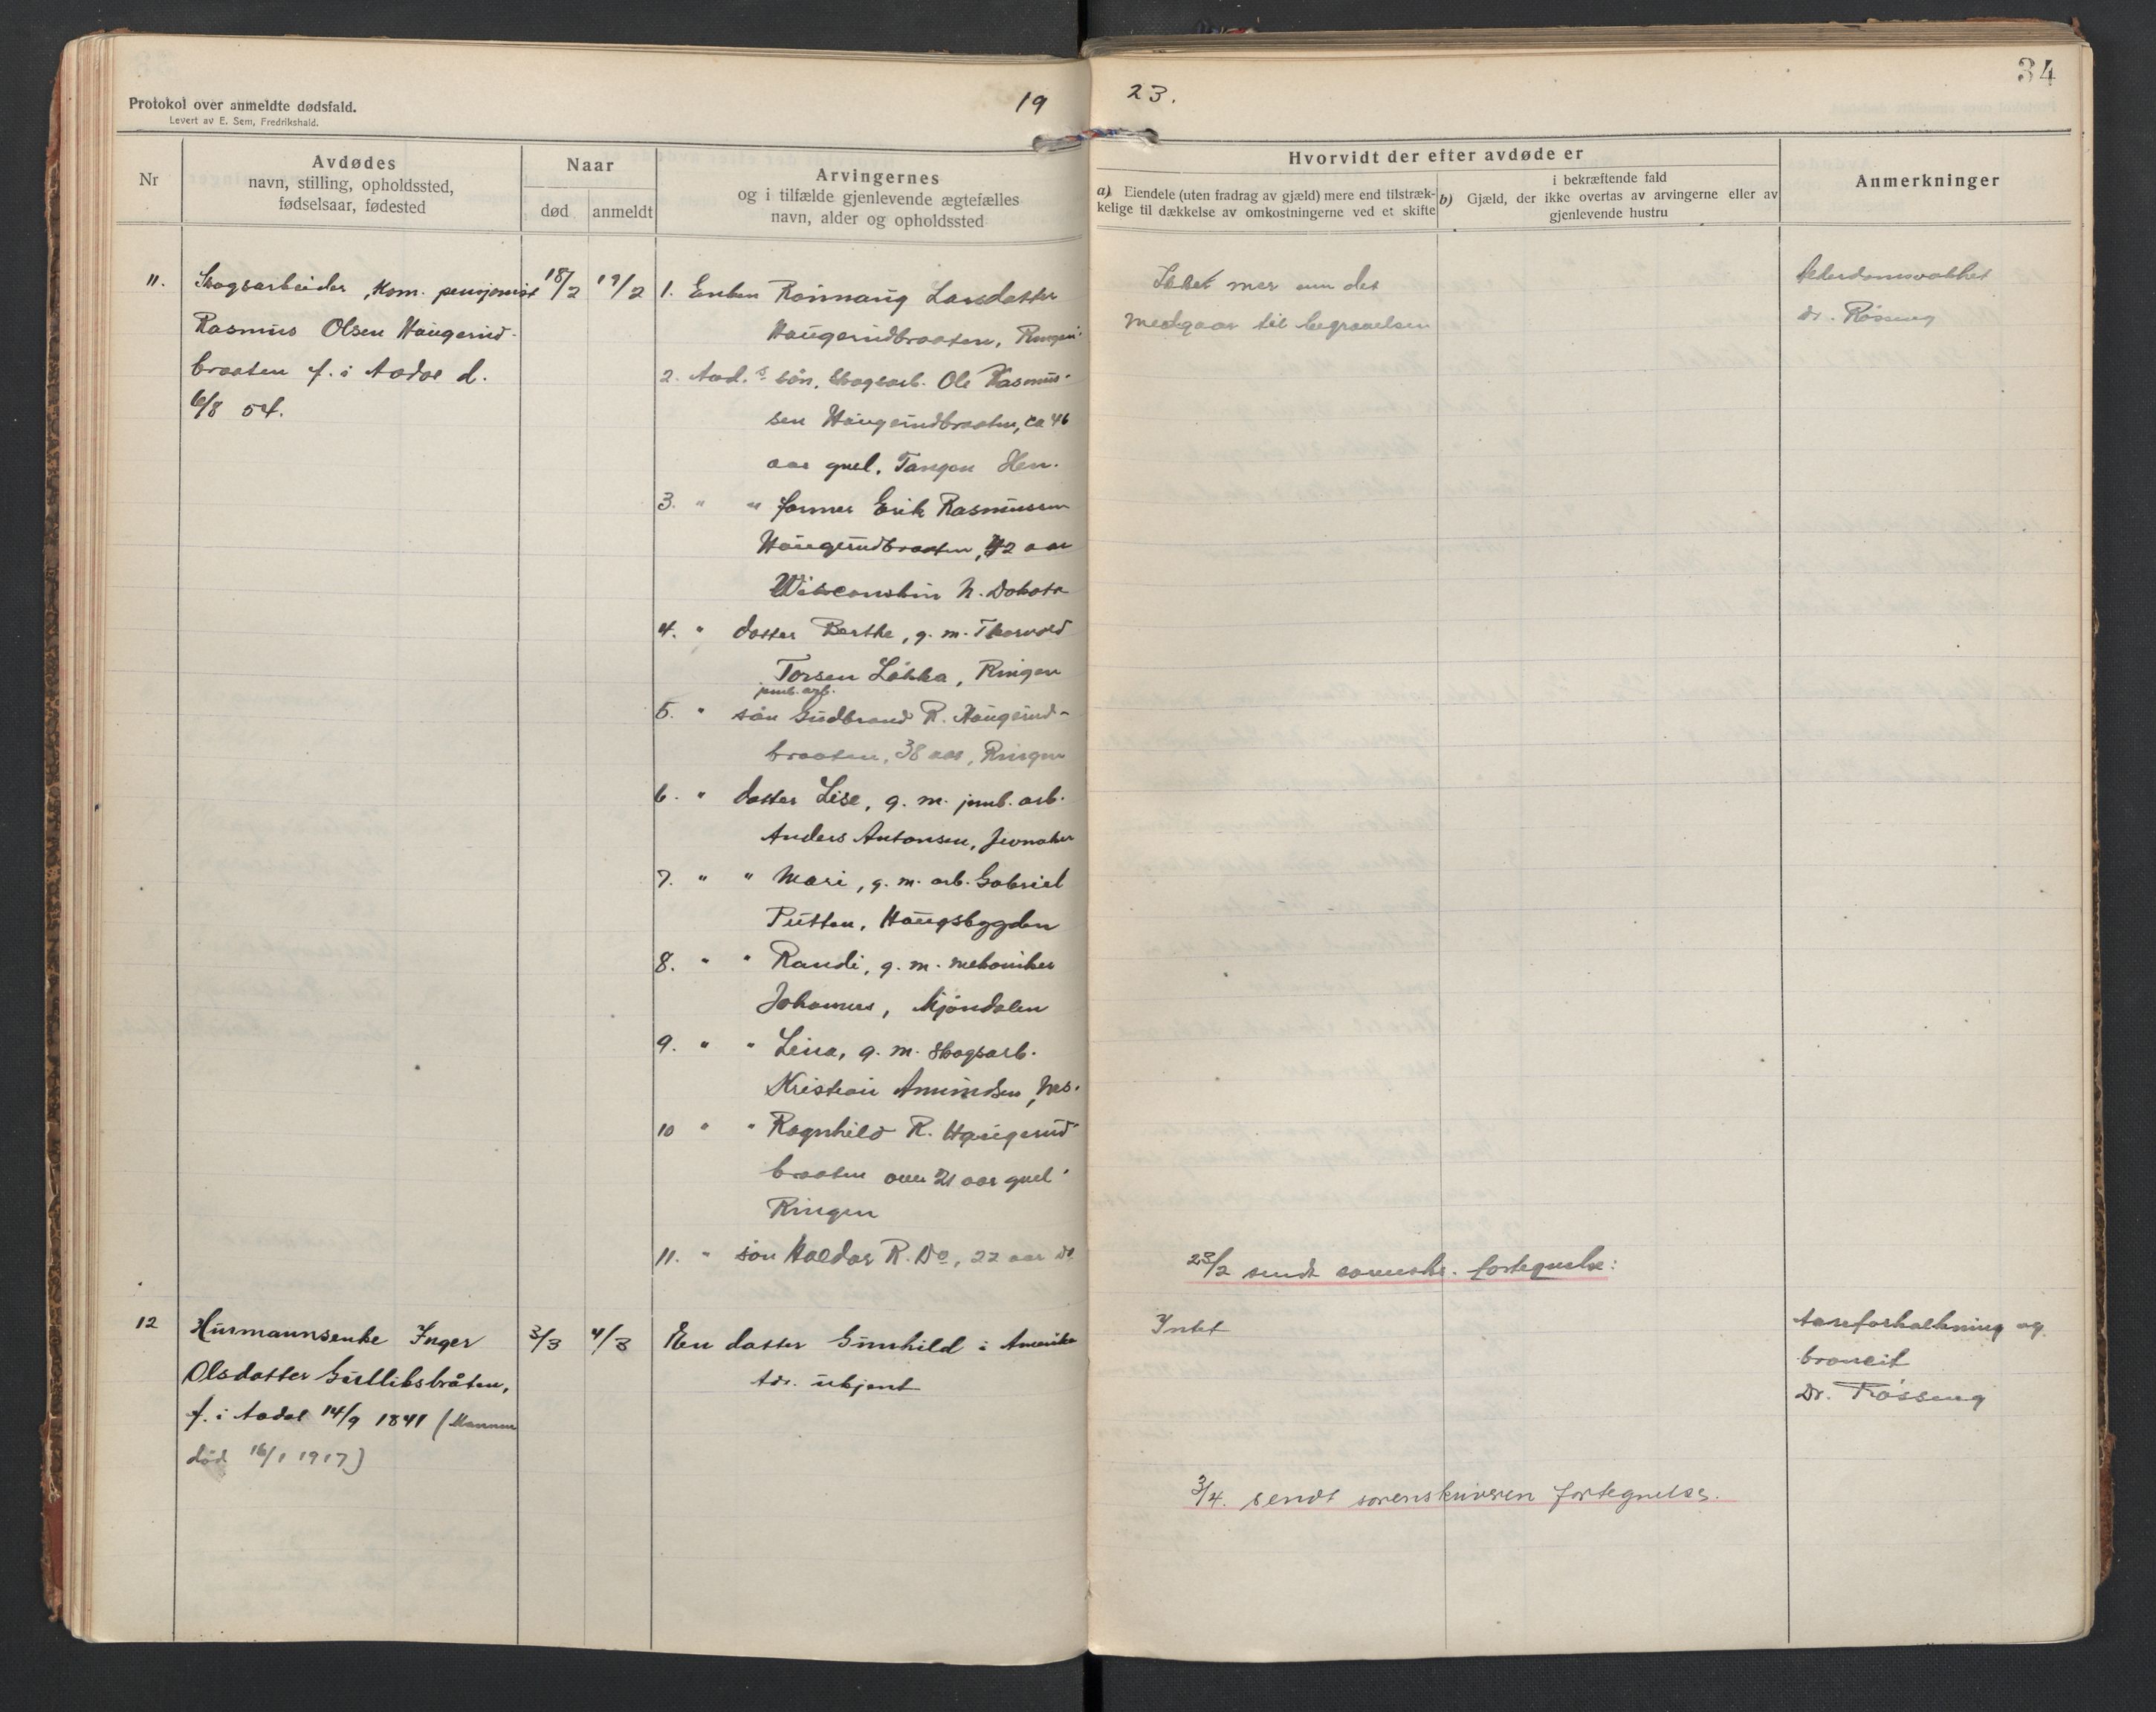 34
Protokol over anmeldte dødsfald.
Levert av E. Sem, Fredrikshald.
19 23.
Nr
Avdødes
navn, stilling, opholdssted,
fødselsaar, fødested
Naar
død anmeldt
Arvingernes
og i tilfælde gjenlevende ægtefælles
navn, alder og opholdssted
Hvorvidt der efter avdøde er
a) Eiendele (uten fradrag av gjæld) mere end tilstræk-
kelige til dækkelse av omkostningerne ved et skifte
i bekræftende fald
b) Gjæld, der ikke overtas av arvingerne eller av
gjenlevende hustru
Anmerkninger
11. Skogsarbeider, kom. pensjonist
Rasmus Olsen Haugerud-
braaten f. i Aadal d.
6/8 54.
18/2 19/2
1. Enken Rønnaug Larsdatter
Haugerudbraaten, Ringeri
2. Avd.s søn, skogsarb. Ole Rasmus-
sen Haugerudbraaten, ca 46
aar gmel. Tangen Hen.
3. " " farmer Erik Rasmussen
Haugerudbraaten, 42 aar
Wisconshin N. Dakota
4. " datter Berthe, g. m. Thorvald
Torsen Løkka, Ringer.
jernb. arb.
5. " søn Gudbrand R. Haugerud-
braaten, 38 aar, Ringer.
6. " datter Lise, g. m. jernb. arb.
Anders Antonsen, Jevnaker
7. " " Mari, g. m. arb. Gabriel
Putten, Haugsbygden
8. " " Randi, g. m. mekaniker
Johannes, Mjøndalen
9. " " Lina, g. m. skogsarb.
Kristian Amundsen, Nes.
10 " " Ragnhild R. Haugerud-
braaten over 21 aar gmel
Ringer.
11. " søn Haldor R. Do, 22 aar do
Ikket mer enn det
medgaar til begravelsen
Alderdomsvakhet
Dr. Røsseng
23/2 sendt sorenskr. fortegnelse:
12 Husmannsenke Inger
Olsdatter Gulliksbråten,
f. i Aadal 14/9 1841 (Mannen
død 16/1 1917)
3/3 4/3
En datter Gunhild i Amerika
Adr. ukjent
Intet
Aareforkalkning og
bronkit
Dr. Røsseng
3/4. sendt sorenskriveren fortegnelse.